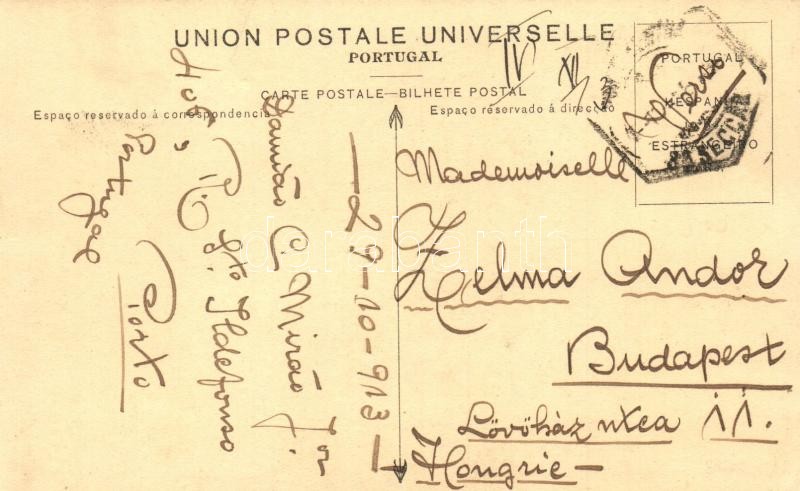 UNION POSTALE UNIVERSELLE
PORTUGAL
CARTE POSTALE—BILHETE POSTAL
Espaço reservado á correspondencia
Espaço reservado á direcção
PORTUGAL
HESPANHA
ESTRANGEIRO
SECÇA
IV XI
Mademoiselle
Zelma Andor
Budapest
Lövöház utca 11.
Hongrie—
—29-10-913—
Damião C. Mirão Jor
Sto. Ildefonso
Porto
Portugal
darabanth